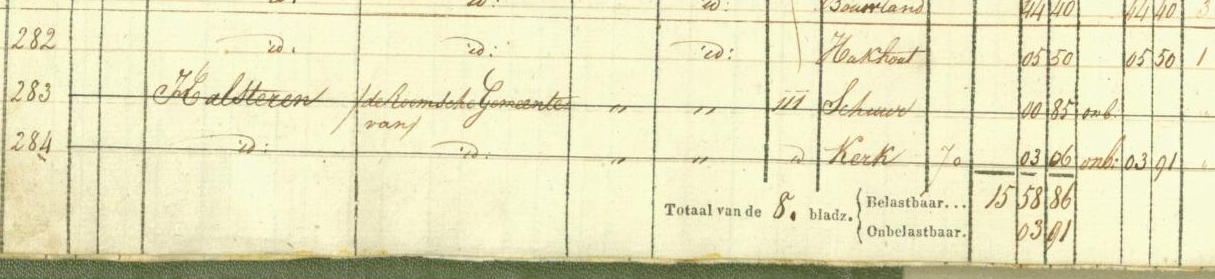 id. id: id: Bouwland 44 40 44 40 3
282 id. id: id: Hakhout 05 50 05 50 1
283 Halsteren (de Roomsche Gemeente van) " " III Schuur 00 85 onb.
284 id: id: " " Kerk 03 06 onb: 03 91
Totaal van de 8. bladz. Belastbaar... 15 58 86
Onbelastbaar. 03 91